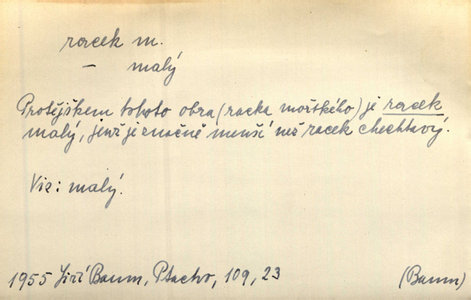 racek m.
– malý
Protějškem tohoto obra (racka mořského) je racek
malý, jenž je značně menší než racek chechtavý.
Viz: malý.
1955 Jiří Baum, Ptactvo, 109, 23 (Baum)